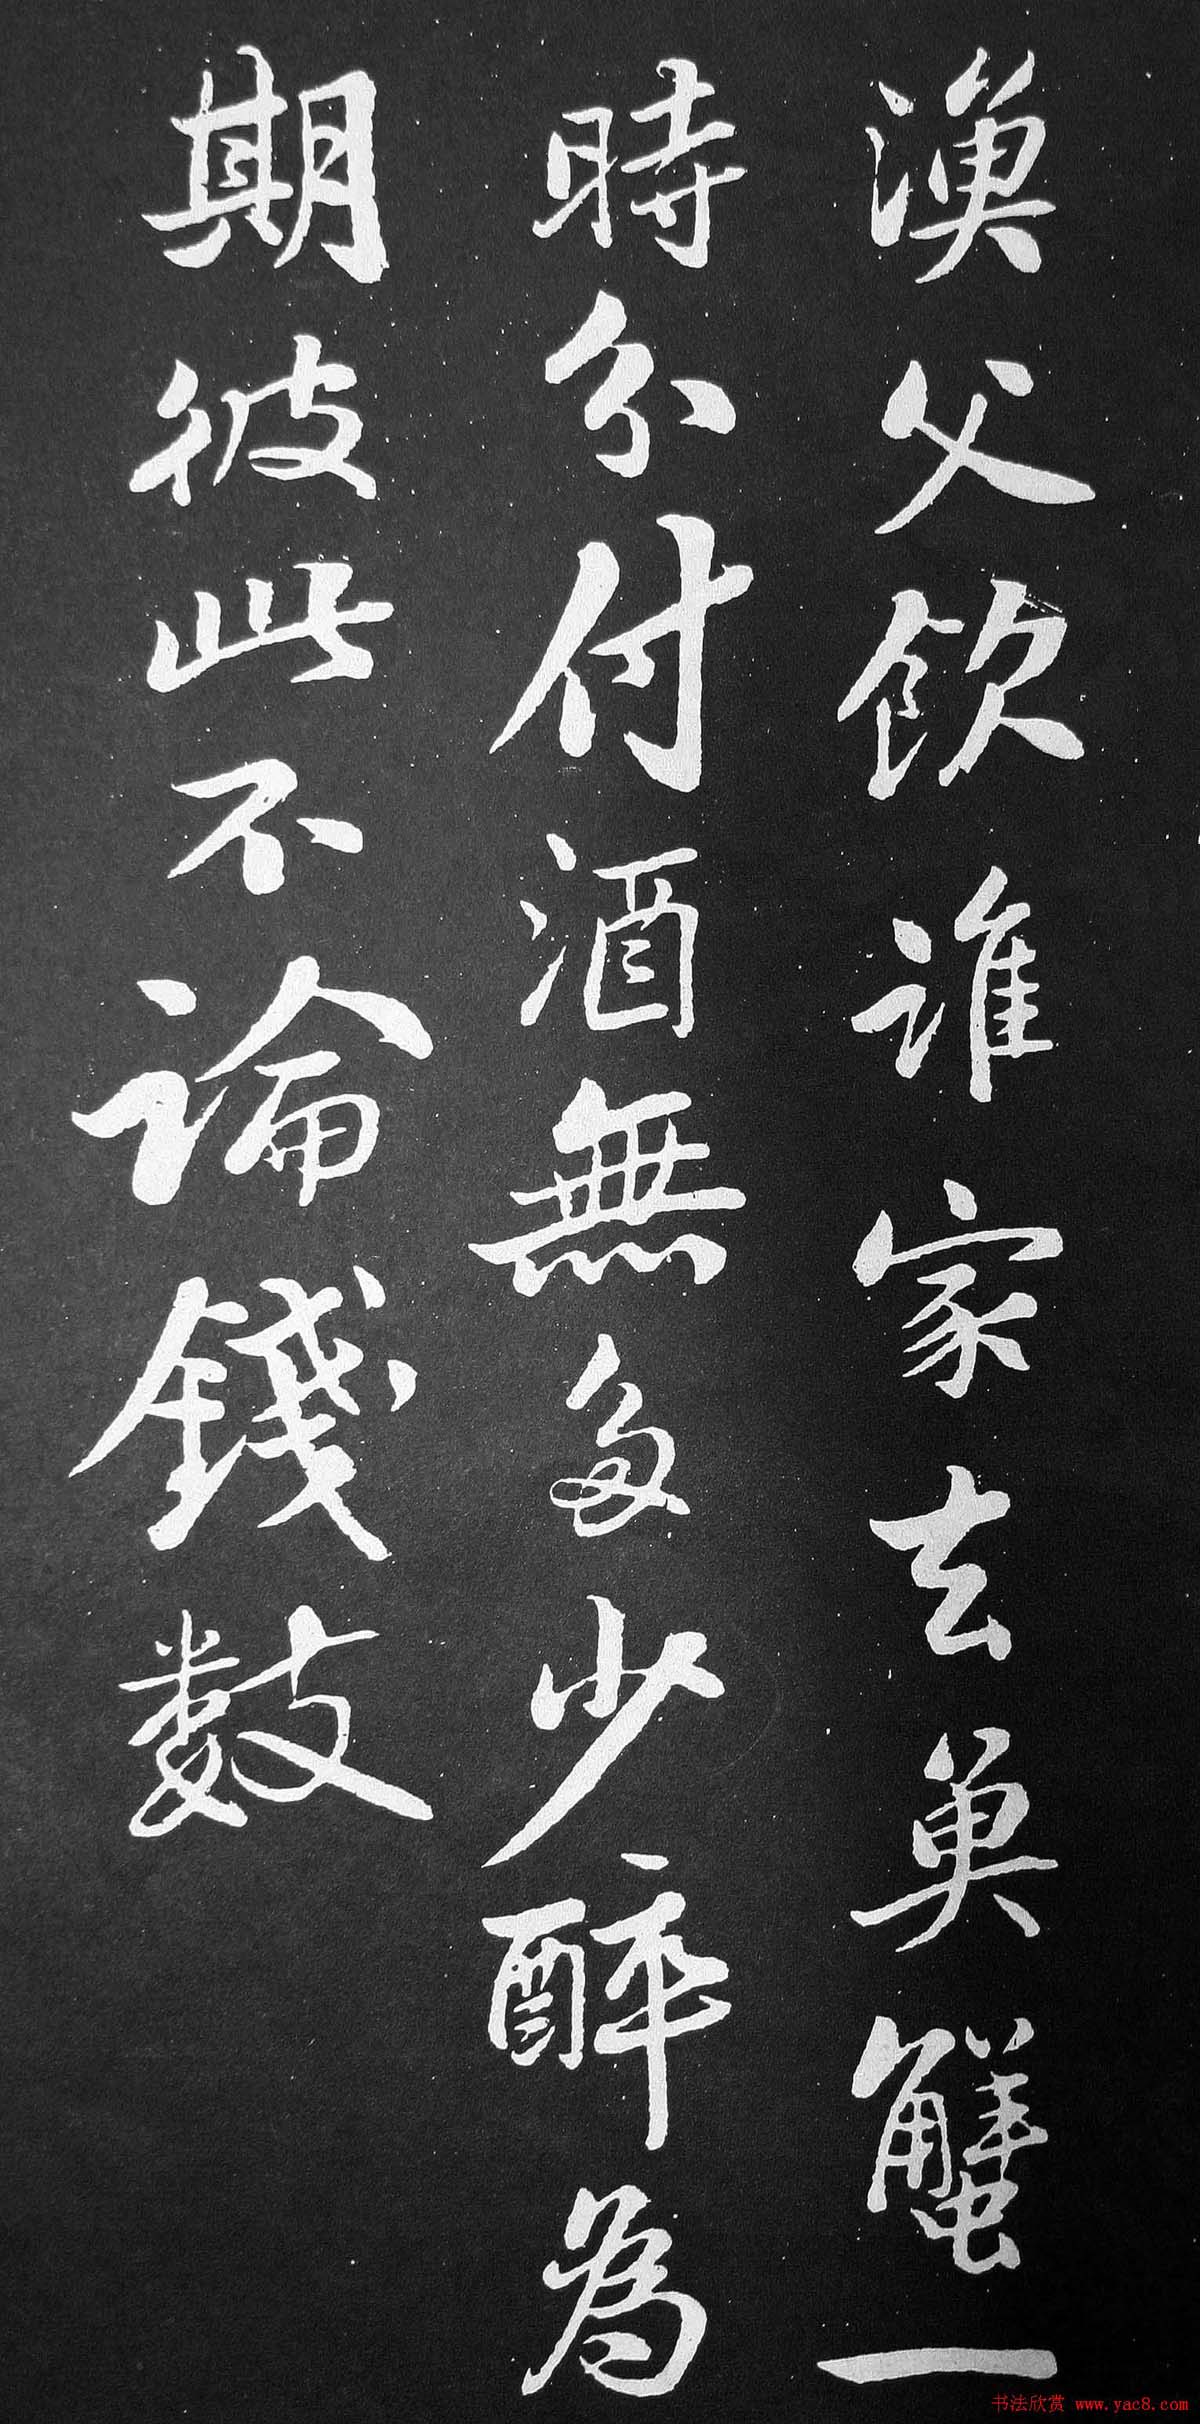 漁父飲誰家去魚蟹一
時分付酒無多少醉為
期彼此不論錢数
书法欣赏 www.yac8.com